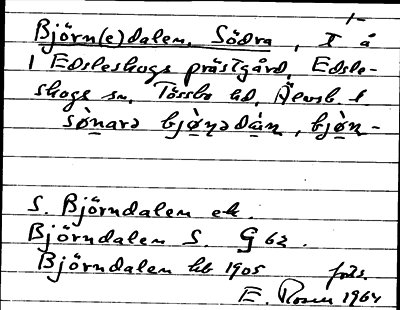 1-
Björn(e)dalen, Södra, I å
1 Edsleskogs prästgård, Edsle-
skogs sn, Tössbo hd, Älvsb. l
sø̀narə bjø̀ṇədàn, bjø̀ṇ-
S. Björndalen ek.
Björndalen S. G 62.
Björndalen hb 1905
E. Rosen 1964